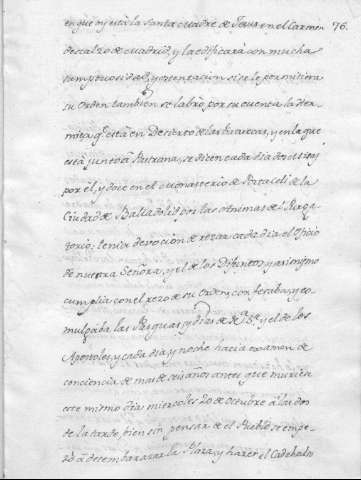 en que oy está la Santa Madre de Jesus en el Carmen 76.
descalzo de Madrid, y la edificará con mucha
sumptuosidad, y ostentación si se lo permitiera
su Orden tambien se labró por su cuenta la Her
mita q.e está en Desierto de las Batuecas, y en la que
está junto á Pastrana, se dicen cada dia dos Missas
por él, y doce en el Monasterio de Portaceli de la
Ciudad de Balladolid por las Animas del Purga
torio; tenia devocion de rezar cada dia el Oficio
de nuestra Señora, y el de los Difuntos, y asimismo
cumplia con el rezo de su Orden, confesaba, y co
mulgaba las Pasquas, y dias de N.ra S.ra y el de los
Apostoles, y cada dia, y noche hacia examen de
conciencia de mas de años antes que muriera
este mismo dia miercoles 20 de Octubre á las dos
de la tarde, bien sin pensar de el Pueblo se empe
zó á desembarazar la Plaza, y hacer el Cadahalso